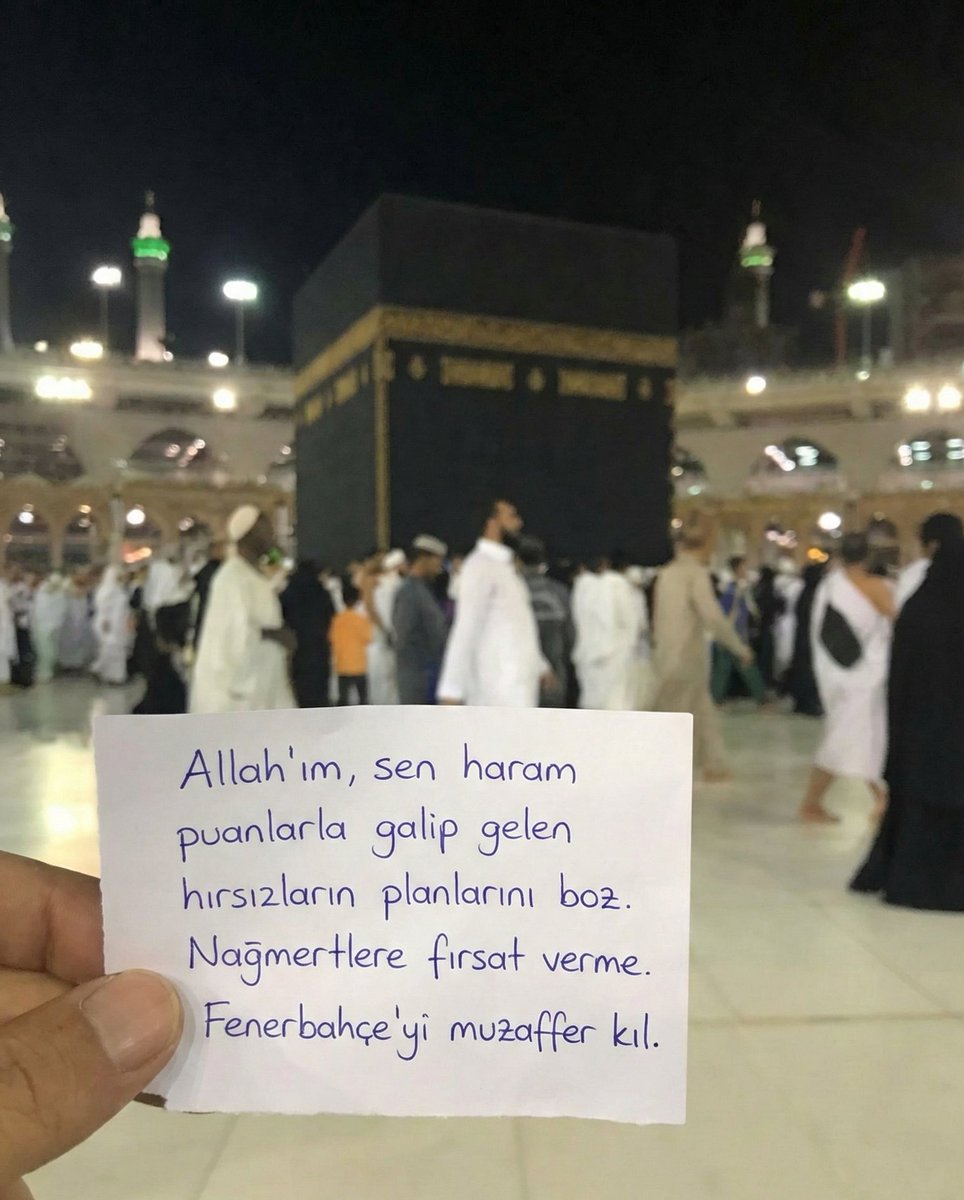 Allah'ım, sen haram
puanlarla galip gelen
hırsızların planlarını boz.
Nağmertlere fırsat verme.
Fenerbahçe'yi muzaffer kıl.